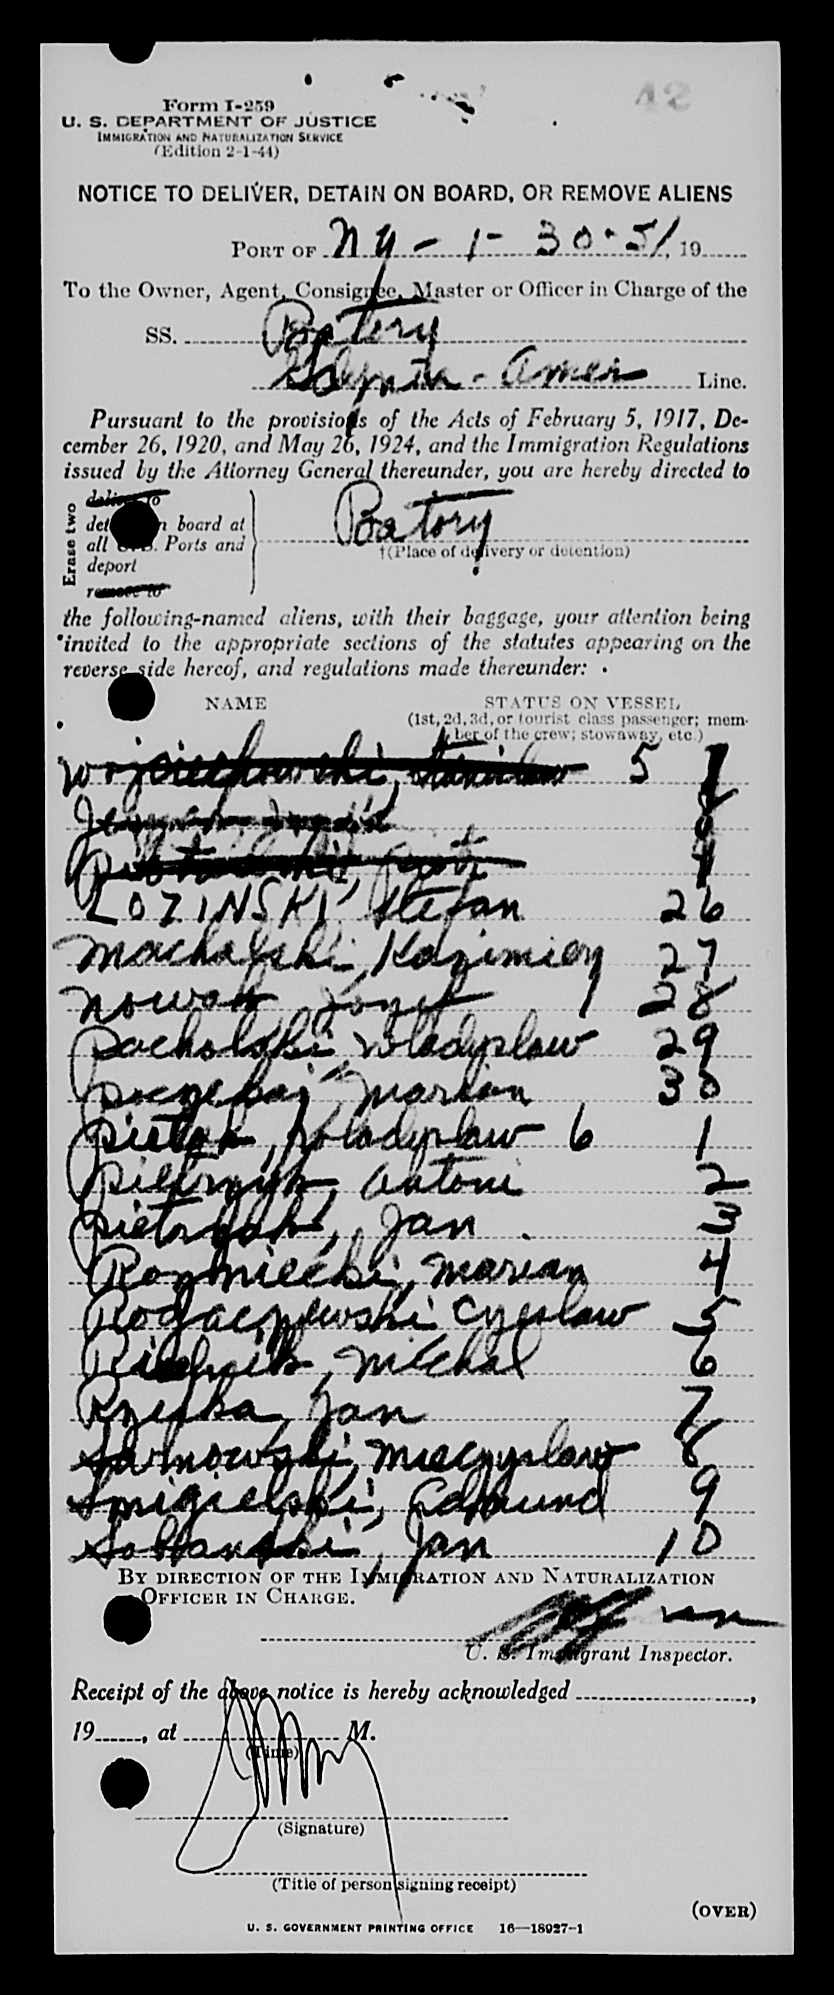 42
Form I-259
U. S. DEPARTMENT OF JUSTICE
IMMIGRATION AND NATURALIZATION SERVICE
(Edition 2-1-44)
NOTICE TO DELIVER, DETAIN ON BOARD, OR REMOVE ALIENS
PORT OF NY - 1- 30-51, 19
To the Owner, Agent, Consignee, Master or Officer in Charge of the
SS. Batory
Gdynia - Amer Line.
Pursuant to the provisions of the Acts of February 5, 1917, De-
cember 26, 1920, and May 26, 1924, and the Immigration Regulations
issued by the Attorney General thereunder, you are hereby directed to
Erase two
deliver to
detain on board at
all U.S. Ports and
deport
remove to
Batory
†(Place of delivery or detention)
the following-named aliens, with their baggage, your attention being
invited to the appropriate sections of the statutes appearing on the
reverse side hereof, and regulations made thereunder:
NAME STATUS ON VESSEL
(1st, 2d, 3d, or tourist class passenger; mem-
ber of the crew; stowaway, etc.)
Wojciechowski, Stanislaw 5
LOZINSKI Stefan 26
Machalski Kazimierz 27
Nowak Jozef 28
Pacholski Wladyslaw 29
Poczekaj Marian 30
Pietak, Wladyslaw 6 1
Pietrzyk, Antoni 2
Pietrzak, Jan 3
Rozmiecki, Marian 4
Rogaczewski Czeslaw 5
Michal 6
Rzeska, Jan 7
Sarnowski, Mieczyslaw 8
Smigielski, Edmund 9
Sobanski, Jan 10
BY DIRECTION OF THE IMMIGRATION AND NATURALIZATION
OFFICER IN CHARGE.
U. S. Immigrant Inspector.
Receipt of the above notice is hereby acknowledged ,
19 , at M.
(Time)
(Signature)
(Title of person signing receipt)
(OVER)
U. S. GOVERNMENT PRINTING OFFICE 16—18927-1